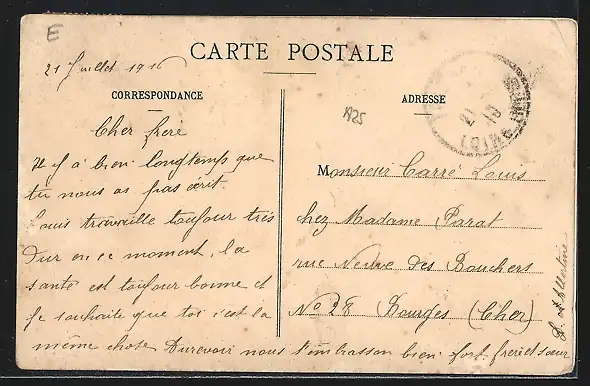 E
21 Juillet 1916
CARTE POSTALE
CORRESPONDANCE
ADRESSE
1925
21
10
LOIRE
Cher frere
Il y a bien longtemps que
tu nous as pas écrit.
Louis travaille toujour très
Dur en ce moment, la
santé est toujour bonne et
je souhaite que toi c'est la
même chose Aurevoir nous t'embrasson bien fort frere et sœur
Monsieur Carré Louis
chez Madame Parat
rue Neuve des Bouchers
No 28 Bourges (Cher)